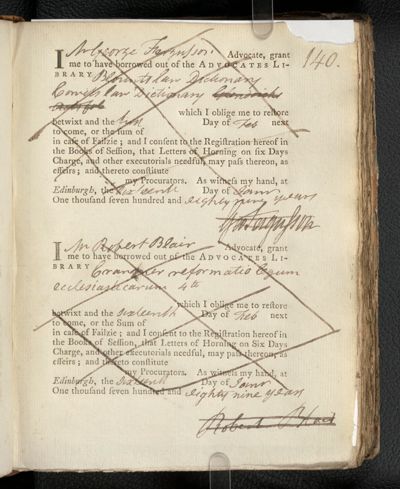 140.
I Mr George Fergusson Advocate, grant
me to have borrowed out of the ADVOCATES LI-
BRARY Blounts Law Dictionary
Cowels Law Dictionary
which I oblige me to reſtore
betwixt and the Day of Feb next
to come, or the ſum of
in caſe of Failzie ; and I conſent to the Regiſtration hereof in
the Books of Seſſion, that Letters of Horning on ſix Days
Charge, and other executorials needful, may paſs thereon, as
effeirs ; and thereto conſtitute
my Procurators. As witneſs my hand, at
Edinburgh, the sixteenth Day of Janry
One thouſand ſeven hundred and eighty nine years
Fergusson
I Mr Robert Blair Advocate, grant
me to have borrowed out of the ADVOCATES LI-
BRARY reformatio legum
ecclesiasticarum 4to
which I oblige me to reſtore
betwixt and the sixteenth Day of Feb next
to come, or the Sum of
in caſe of Failzie ; and I conſent to the Regiſtration hereof in
the Books of Seſſion, that Letters of Horning on Six Days
Charge, and other executorials needful, may paſs thereon, as
effeirs ; and thereto conſtitute
my Procurators. As witneſs my hand, at
Edinburgh, the sixteenth Day of Janry
One thouſand ſeven hundred and eighty nine years
Robert Blair